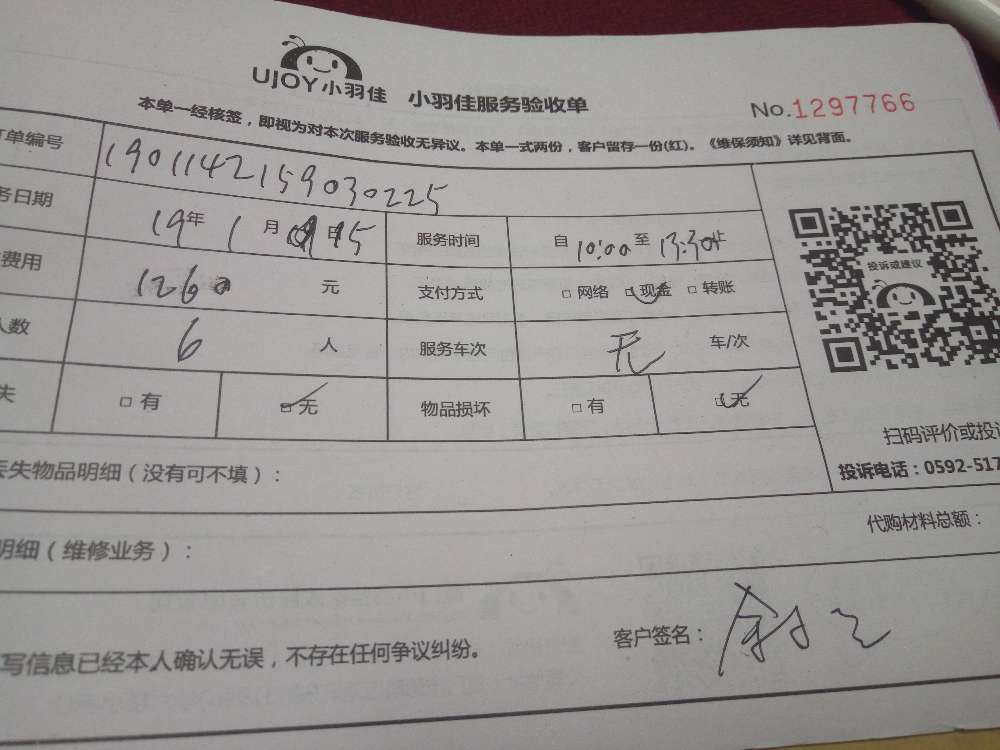 UJOY小羽佳 小羽佳服务验收单
No.1297766
本单一经核签，即视为对本次服务验收无异议。本单一式两份，客户留存一份(红)。《维保须知》详见背面。
单编号 19011421590302​25
务日期 19年 1月 15 服务时间 自 10:00 至 13:30止
费用 1260 元 支付方式 □ 网络 □ 现金 □ 转账
人数 6 人 服务车次 无 车/次
失 □ 有 □ 无 物品损坏 □ 有 □ 无
投诉或建议
扫码评价或投
投诉电话：0592-517
丢失物品明细（没有可不填）：
代购材料总额：
明细（维修业务）：
写信息已经本人确认无误，不存在任何争议纠纷。
客户签名：